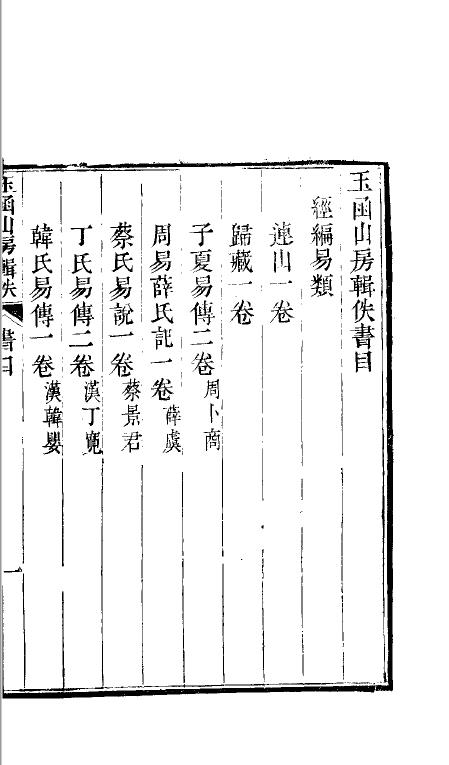 玉函山房輯佚書目
經編易類
連山一卷
歸藏一卷
子夏易傳二卷周卜商
周易薛氏記一卷薛虞
蔡氏易說一卷蔡景君
丁氏易傳二卷漢丁寬
韓氏易傳一卷漢韓嬰
玉函山房輯佚書目 一